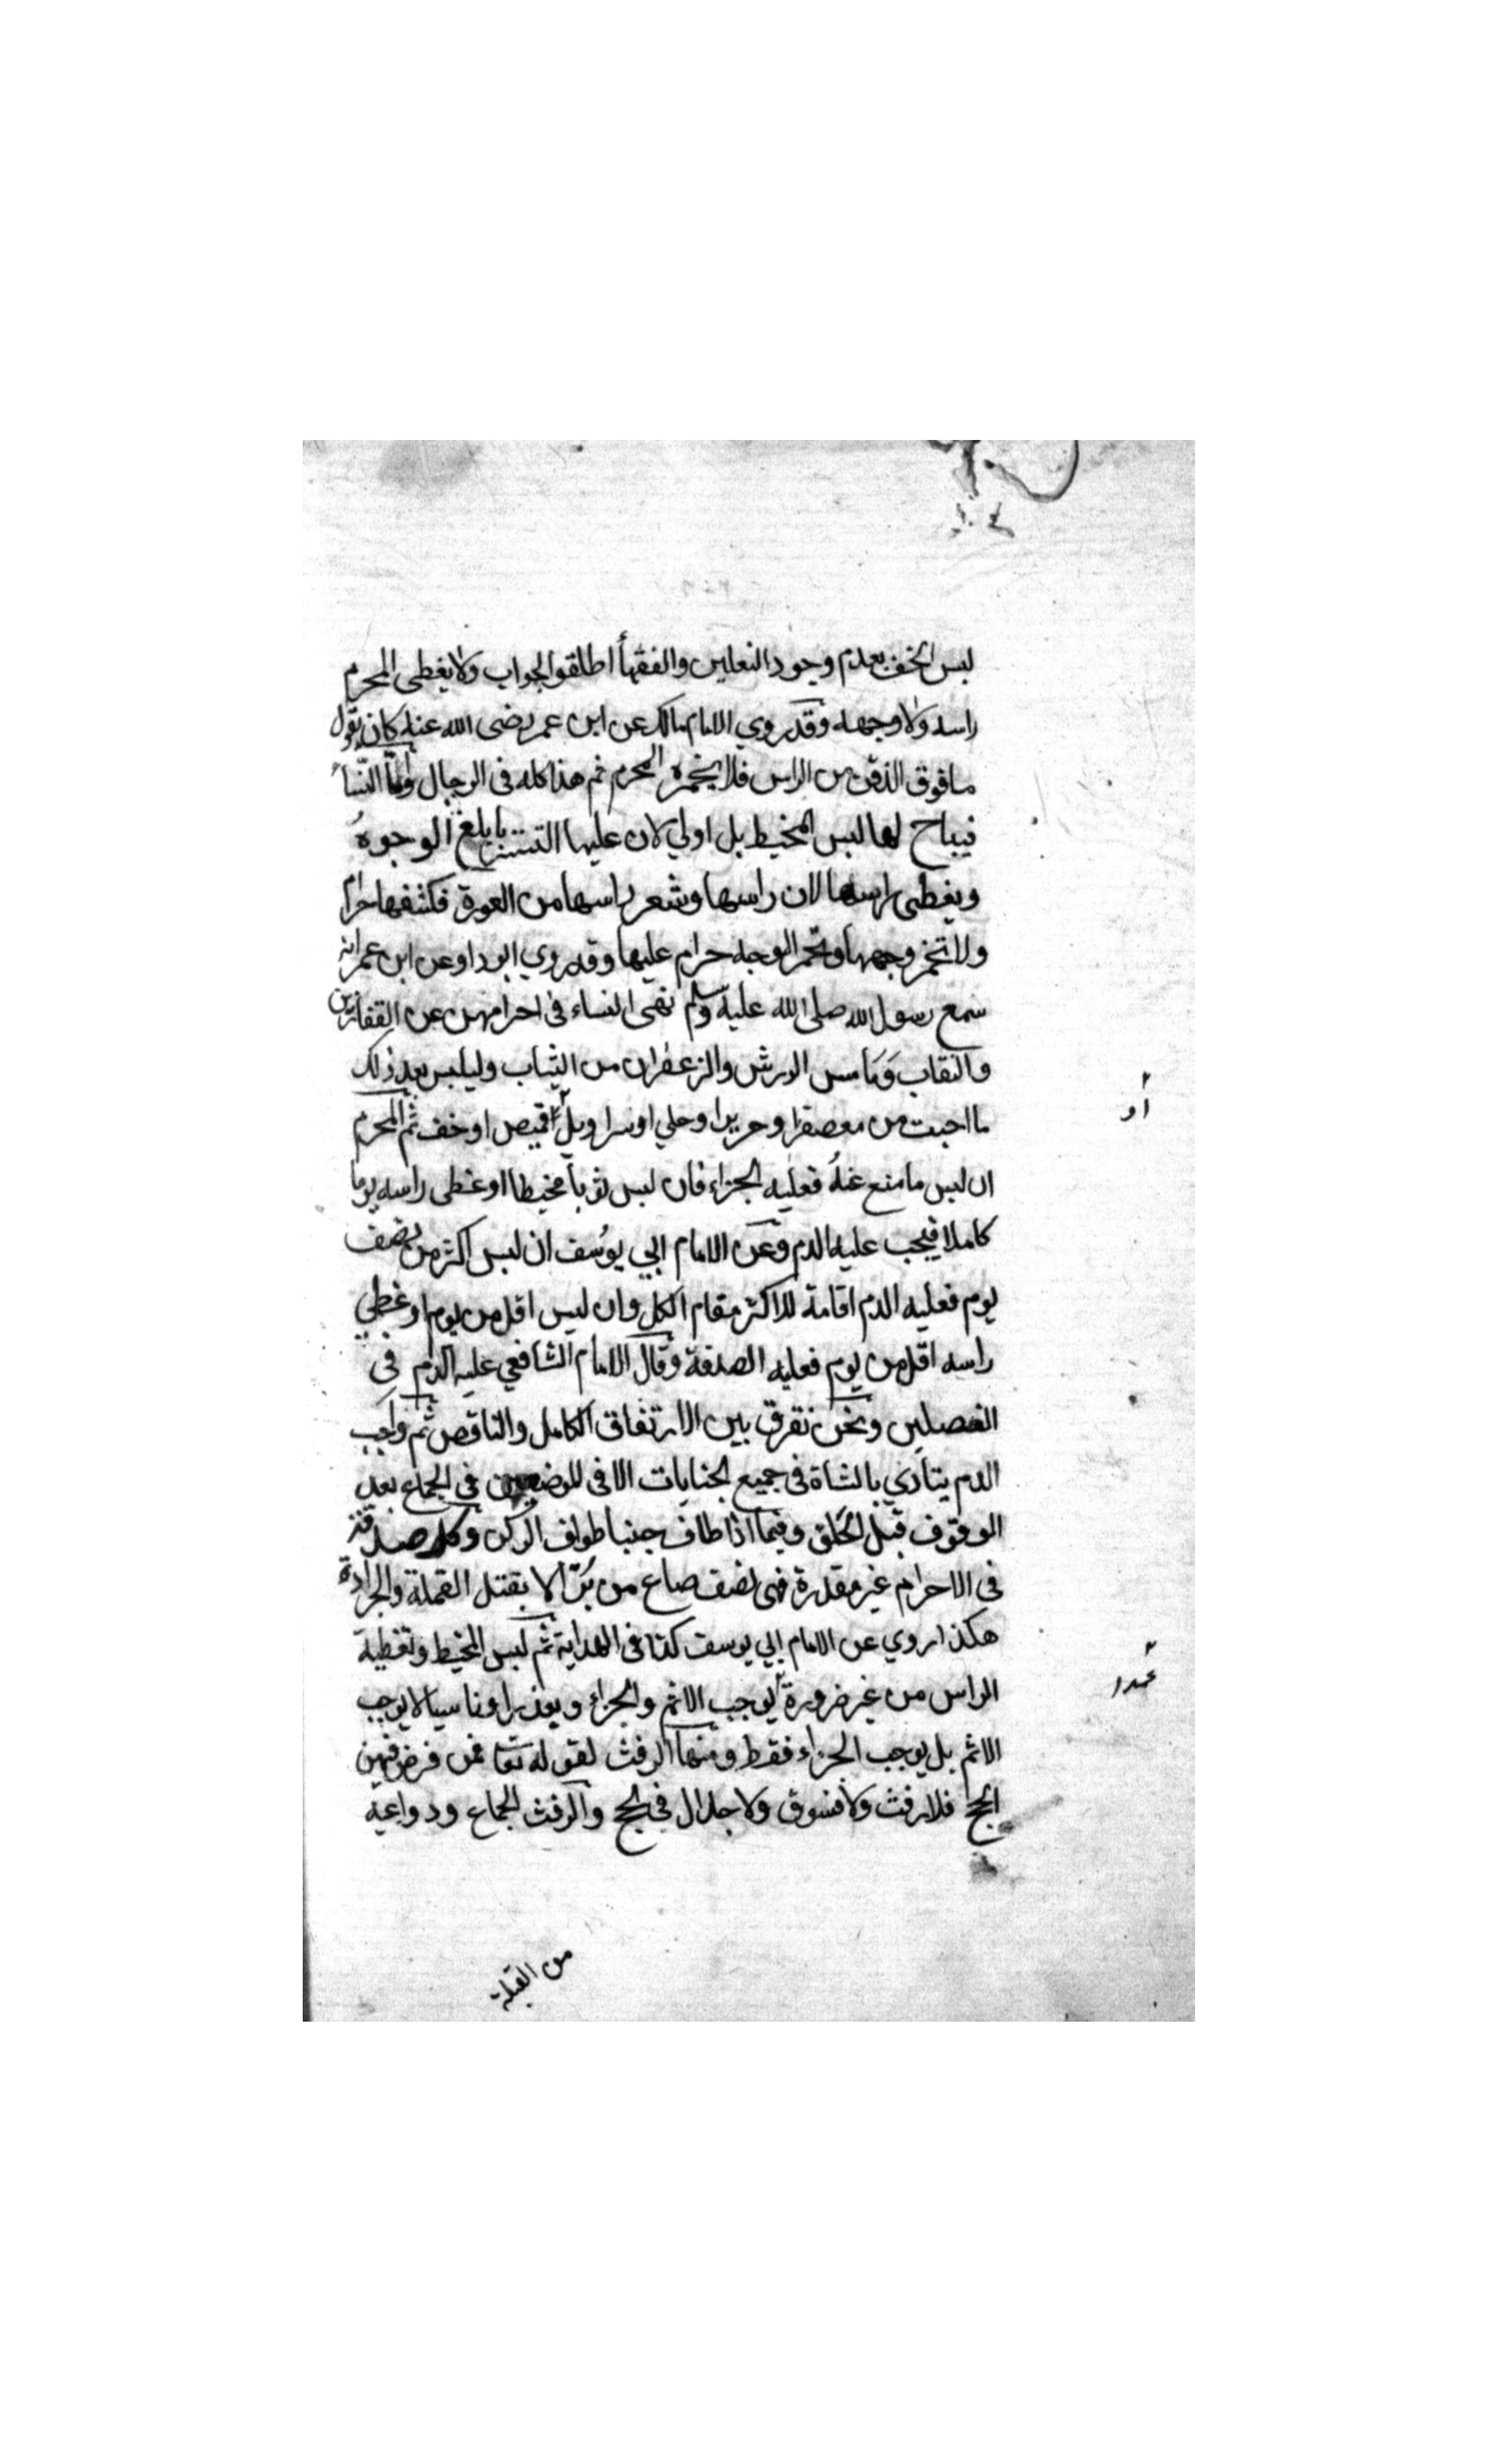 لبس الخف بعدم وجود النعلين والفقهأ اطلقوا الجواب ولا يغطى المحرم
راسه ولا وجهه وقد روي الامام مالك عن ابن عمر رضى الله عنه كان يقول
ما فوق الذقن من الراس فلا يخمره المحرم ثم هذا كله فى الرجال واما النسأ
فيباح لها لبس المخيط بل اولي لان عليها التستر بابلغ الوجوه
ويغطى راسها لان راسها وشعر راسها من العورة فكشفها حرام
ولا تخمر وجهها وتخمر الوجه حرام عليها وقد روي ابو داو عن ابن عمر انه
سمع رسول الله صلى الله عليه وسلم نهى النساء فى احرامهن عن القفازين
والنقاب وما مس الورس والزعفران من الثياب وليلبس بعد ذلك
ما احبت من معصفرا وحريرا وحلي او سراويل قميص او خف ثم المحرم
ان لبس ما منع عنه فعليه الجزاء فان لبس ثوبا مخيطا او غطى راسه يوما
كاملا فيجب عليه الدم وعن الامام ابي يوسف ان لبس اكثر من نصف
يوم فعليه الدم اقامة للاكثر مقام الكل وان لبس اقل من يوم او غطي
راسه اقل من يوم فعليه الصدقة وقال الامام الشافعي عليه الدم فى
الفصلين ونحن نفرق بين الارتفاق الكامل والناقص ثم واجب
الدم يتادي بالشاة فى جميع الجنايات الا فى الموضعين فى الجماع بعد
الوقوف قبل الحلق وفيما اذا طاف جنبا طواف الركن وكل صدقة
فى الاحرام غير مقدرة فهى نصف صاع من بر الا بقتل القملة والجرادة
هكذا روي عن الامام ابي يوسف كذا فى الهداية ثم لبس المخيط وتغطية
الراس من غير ضرورة يوجب الاثم والجزاء وبعذر او ناسيا لا يوجب
الاثم بل يوجب الجزاء فقط ومنها الرفث لقوله تعا فمن فرض فيهن
الحج فلا رفث ولا فسوق ولا جدال فى الحج والرفث الجماع ودواعيه
او
عمدا
من القبلة